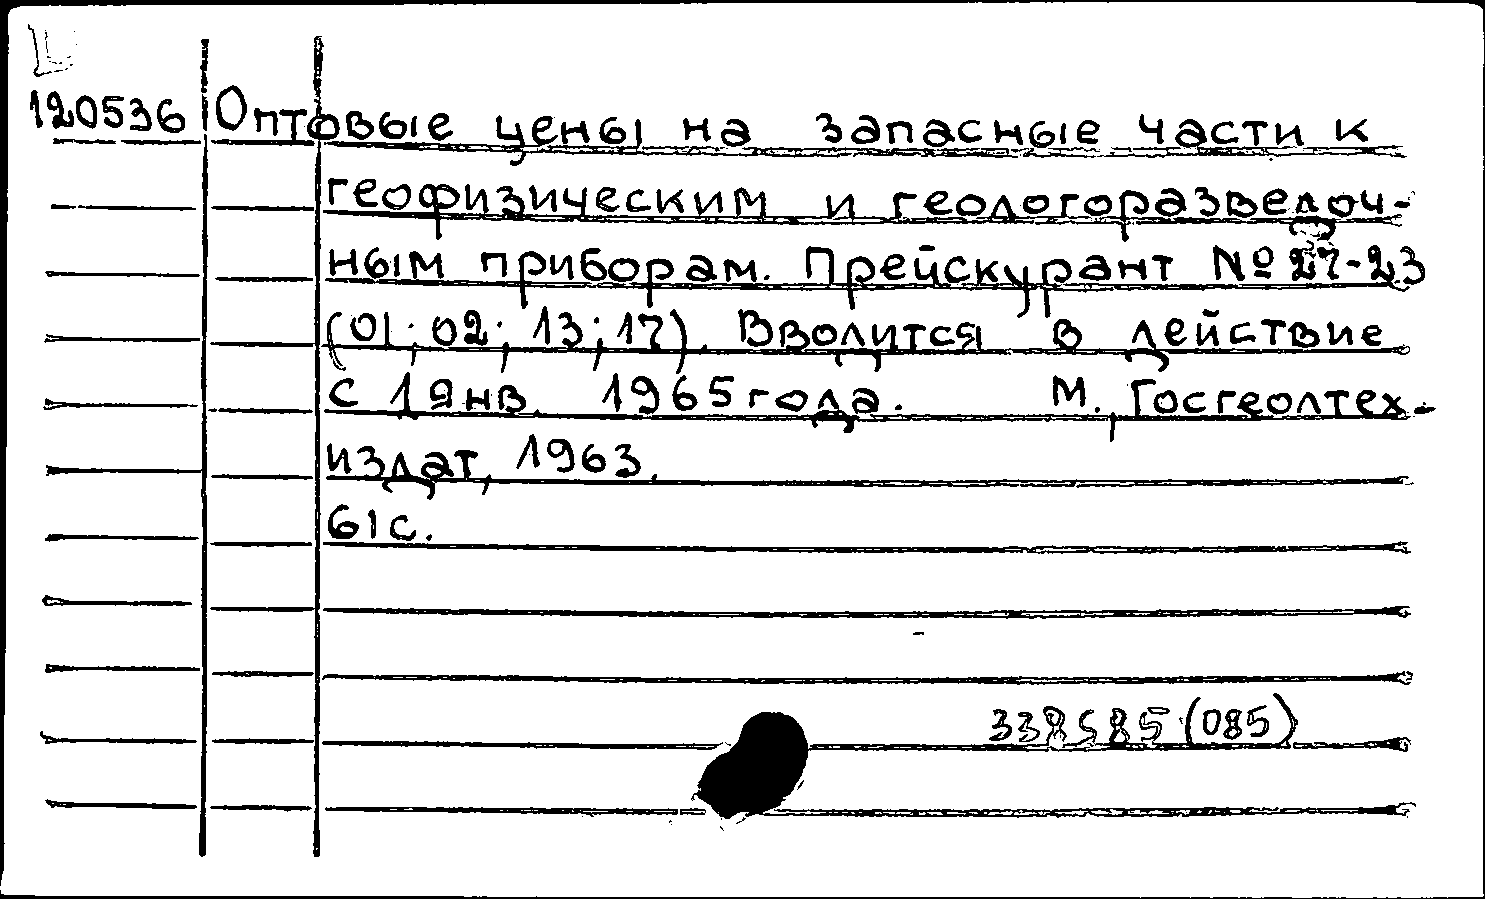 120536 Оптовые цены на запасные части к
геофизическим и геологоразведоч-
ным приборам. Прейскурант № 27-23
(01; 02; 13; 17). Вводится в действие
с 1 янв. 1965 года. М., Госгеолтех-
издат, 1963.
61с.
338585(085)